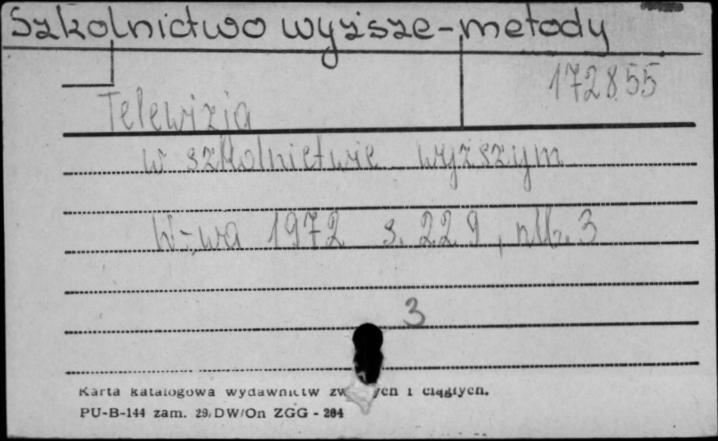 Szkolnictwo wyższe-metody
172855
Telewizja
w szkolnictwie wyższym
W-wa 1972 s. 229, nlb. 3
3
Karta katalogowa wydawnictw i ciągłych.
PU-B-144 zam. 29/DW/On ZGG - 204